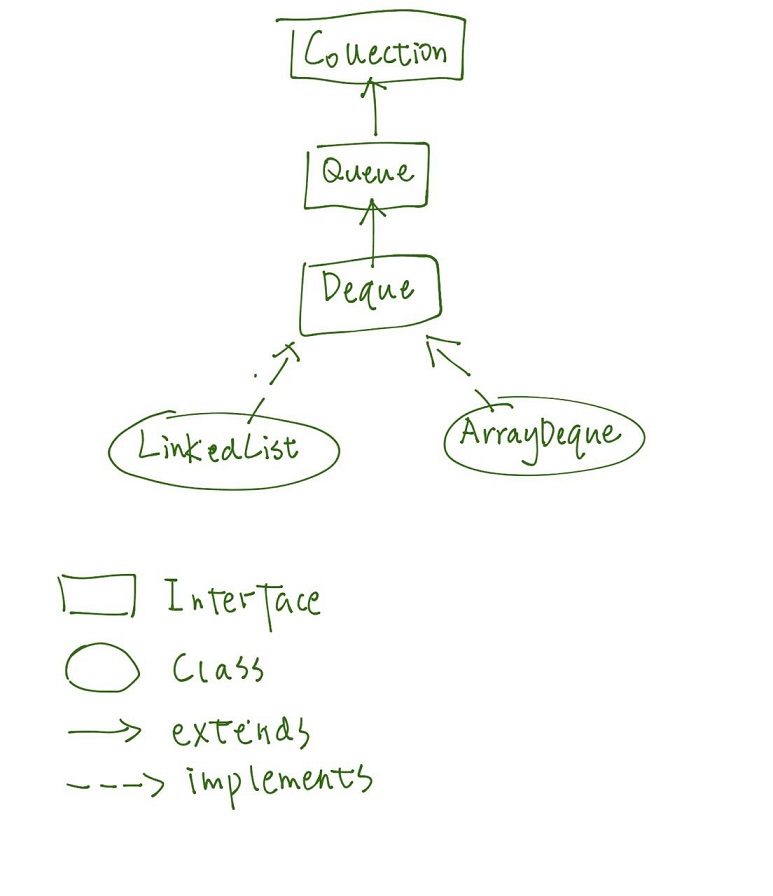 Collection
Queue
Deque
LinkedList
ArrayDeque
Interface
Class
extends
implements